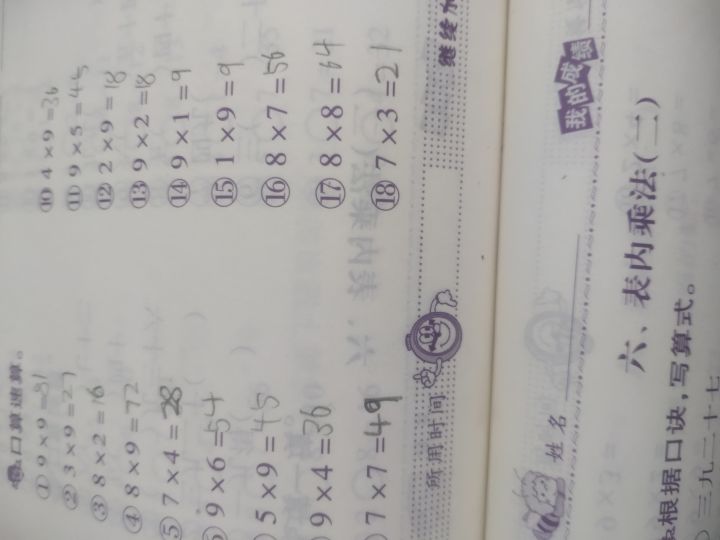 口算速算。
① 9×9=81
② 3×9=27
③ 8×2=16
④ 8×9=72
⑤ 7×4=28
⑥ 9×6=54
5×9=45
9×4=36
7×7=49
⑩ 4×9=36
⑪ 9×5=45
⑫ 2×9=18
⑬ 9×2=18
⑭ 9×1=9
⑮ 1×9=9
⑯ 8×7=56
⑰ 8×8=64
⑱ 7×3=21
所用时间
继续
姓名
我的成绩
六、表内乘法(二)
根据口诀,写算式。
三九二十七